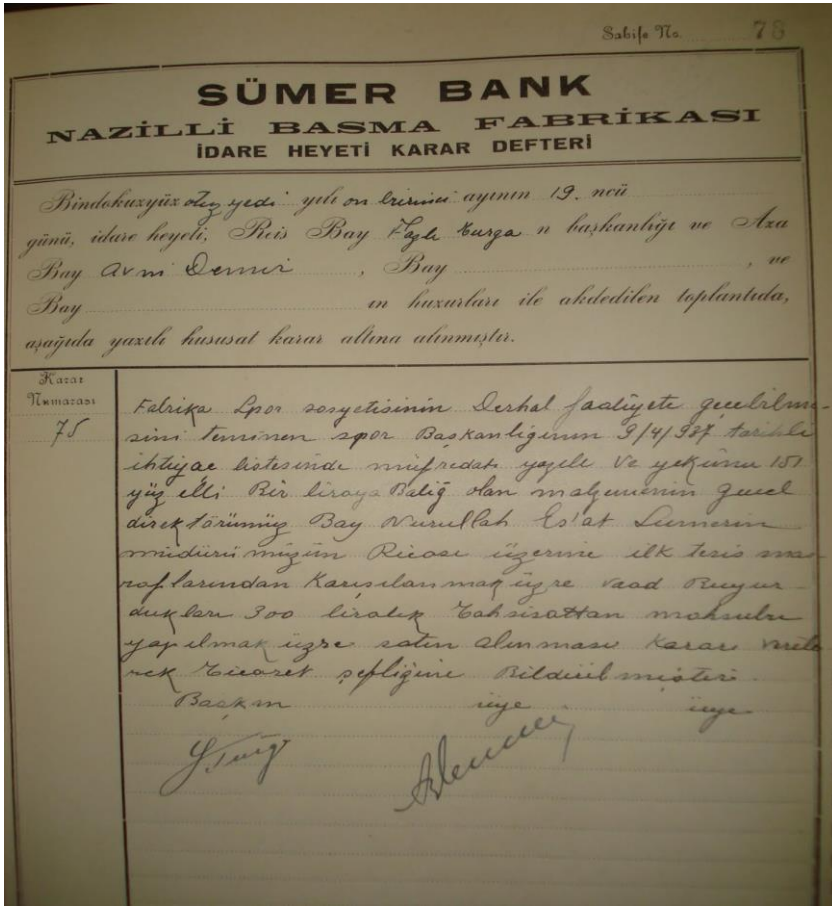 Sahife No. 78
SÜMER BANK
NAZİLLİ BASMA FABRİKASI
İDARE HEYETİ KARAR DEFTERİ
Bindokuzyüz otuz yedi yılı on birinci ayının 19. ncü
günü, idare heyeti, Reis Bay Fazlı Turga n başkanlığı ve Aza
Bay Avni Demir , Bay , ve
Bay ın huzurları ile akdedilen toplantıda,
aşağıda yazılı hususat karar altına alınmıştır.
Karar
Numarası
75
Fabrika Spor sosyetisinin Derhal faaliyete geçebilme-
sini teminen spor Başkanlığının 9/4/937 tarihli
ihtiyac listesinde müfredatı yazılı ve yekünu 151
yüz elli Bir liraya Baliğ olan malzemenin genel
direktörümüz Bay Nurullah Es'at Sumerin
müdürümüzün Ricası üzerine ilk tesis mas-
raflarından Karşılanmak üzre vaad Buyur-
dukları 300 liralık Tahsisattan mahsubu
yapılmak üzre satın alınması Kararı verile-
rek Ticaret şefliğine Bildirilmiştir.
Başkan üye üye